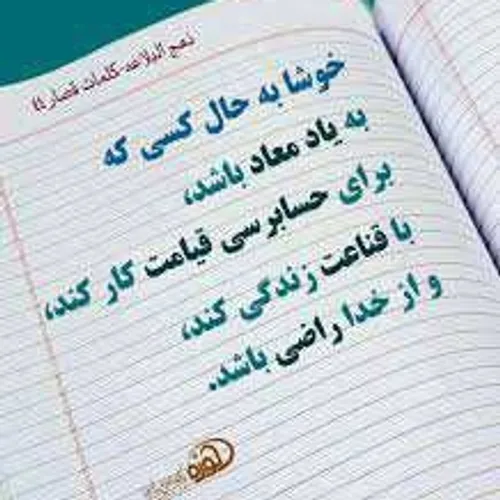 نهج البلاغه-کلمات قصار
خوشا به حال کسی که
به یاد معاد باشد،
برای حسابرسی قیامت کار کند،
با قناعت زندگی کند،
و از خدا راضی باشد.
حوزه